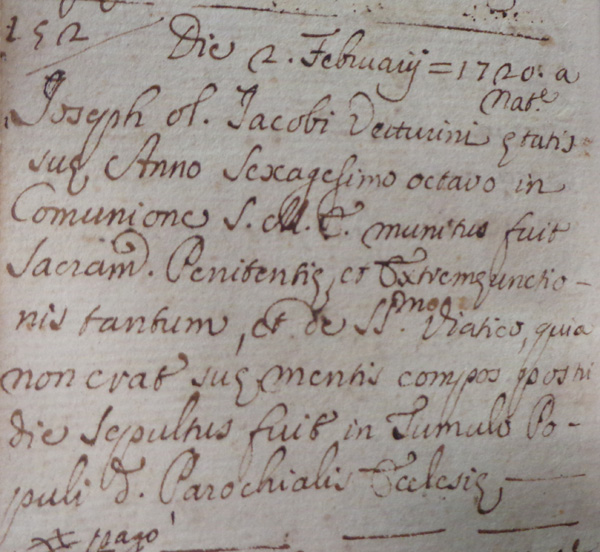 152
Die 2. Februarij = 1720. a
Nat.e
Joseph ol. Jacobi Vecturini ętatis
suę Anno Sexagesimo octavo in
Comunione S. M. E. munitus fuit
Sacram. Penitentię, et Extremęunctio-
nis tantum, et de SS.mo Viatico, quia
non erat suę mentis compos posttri
die Sepultus fuit in Tumulo Po-
puli d. Parochialis Ecclesię
pagò